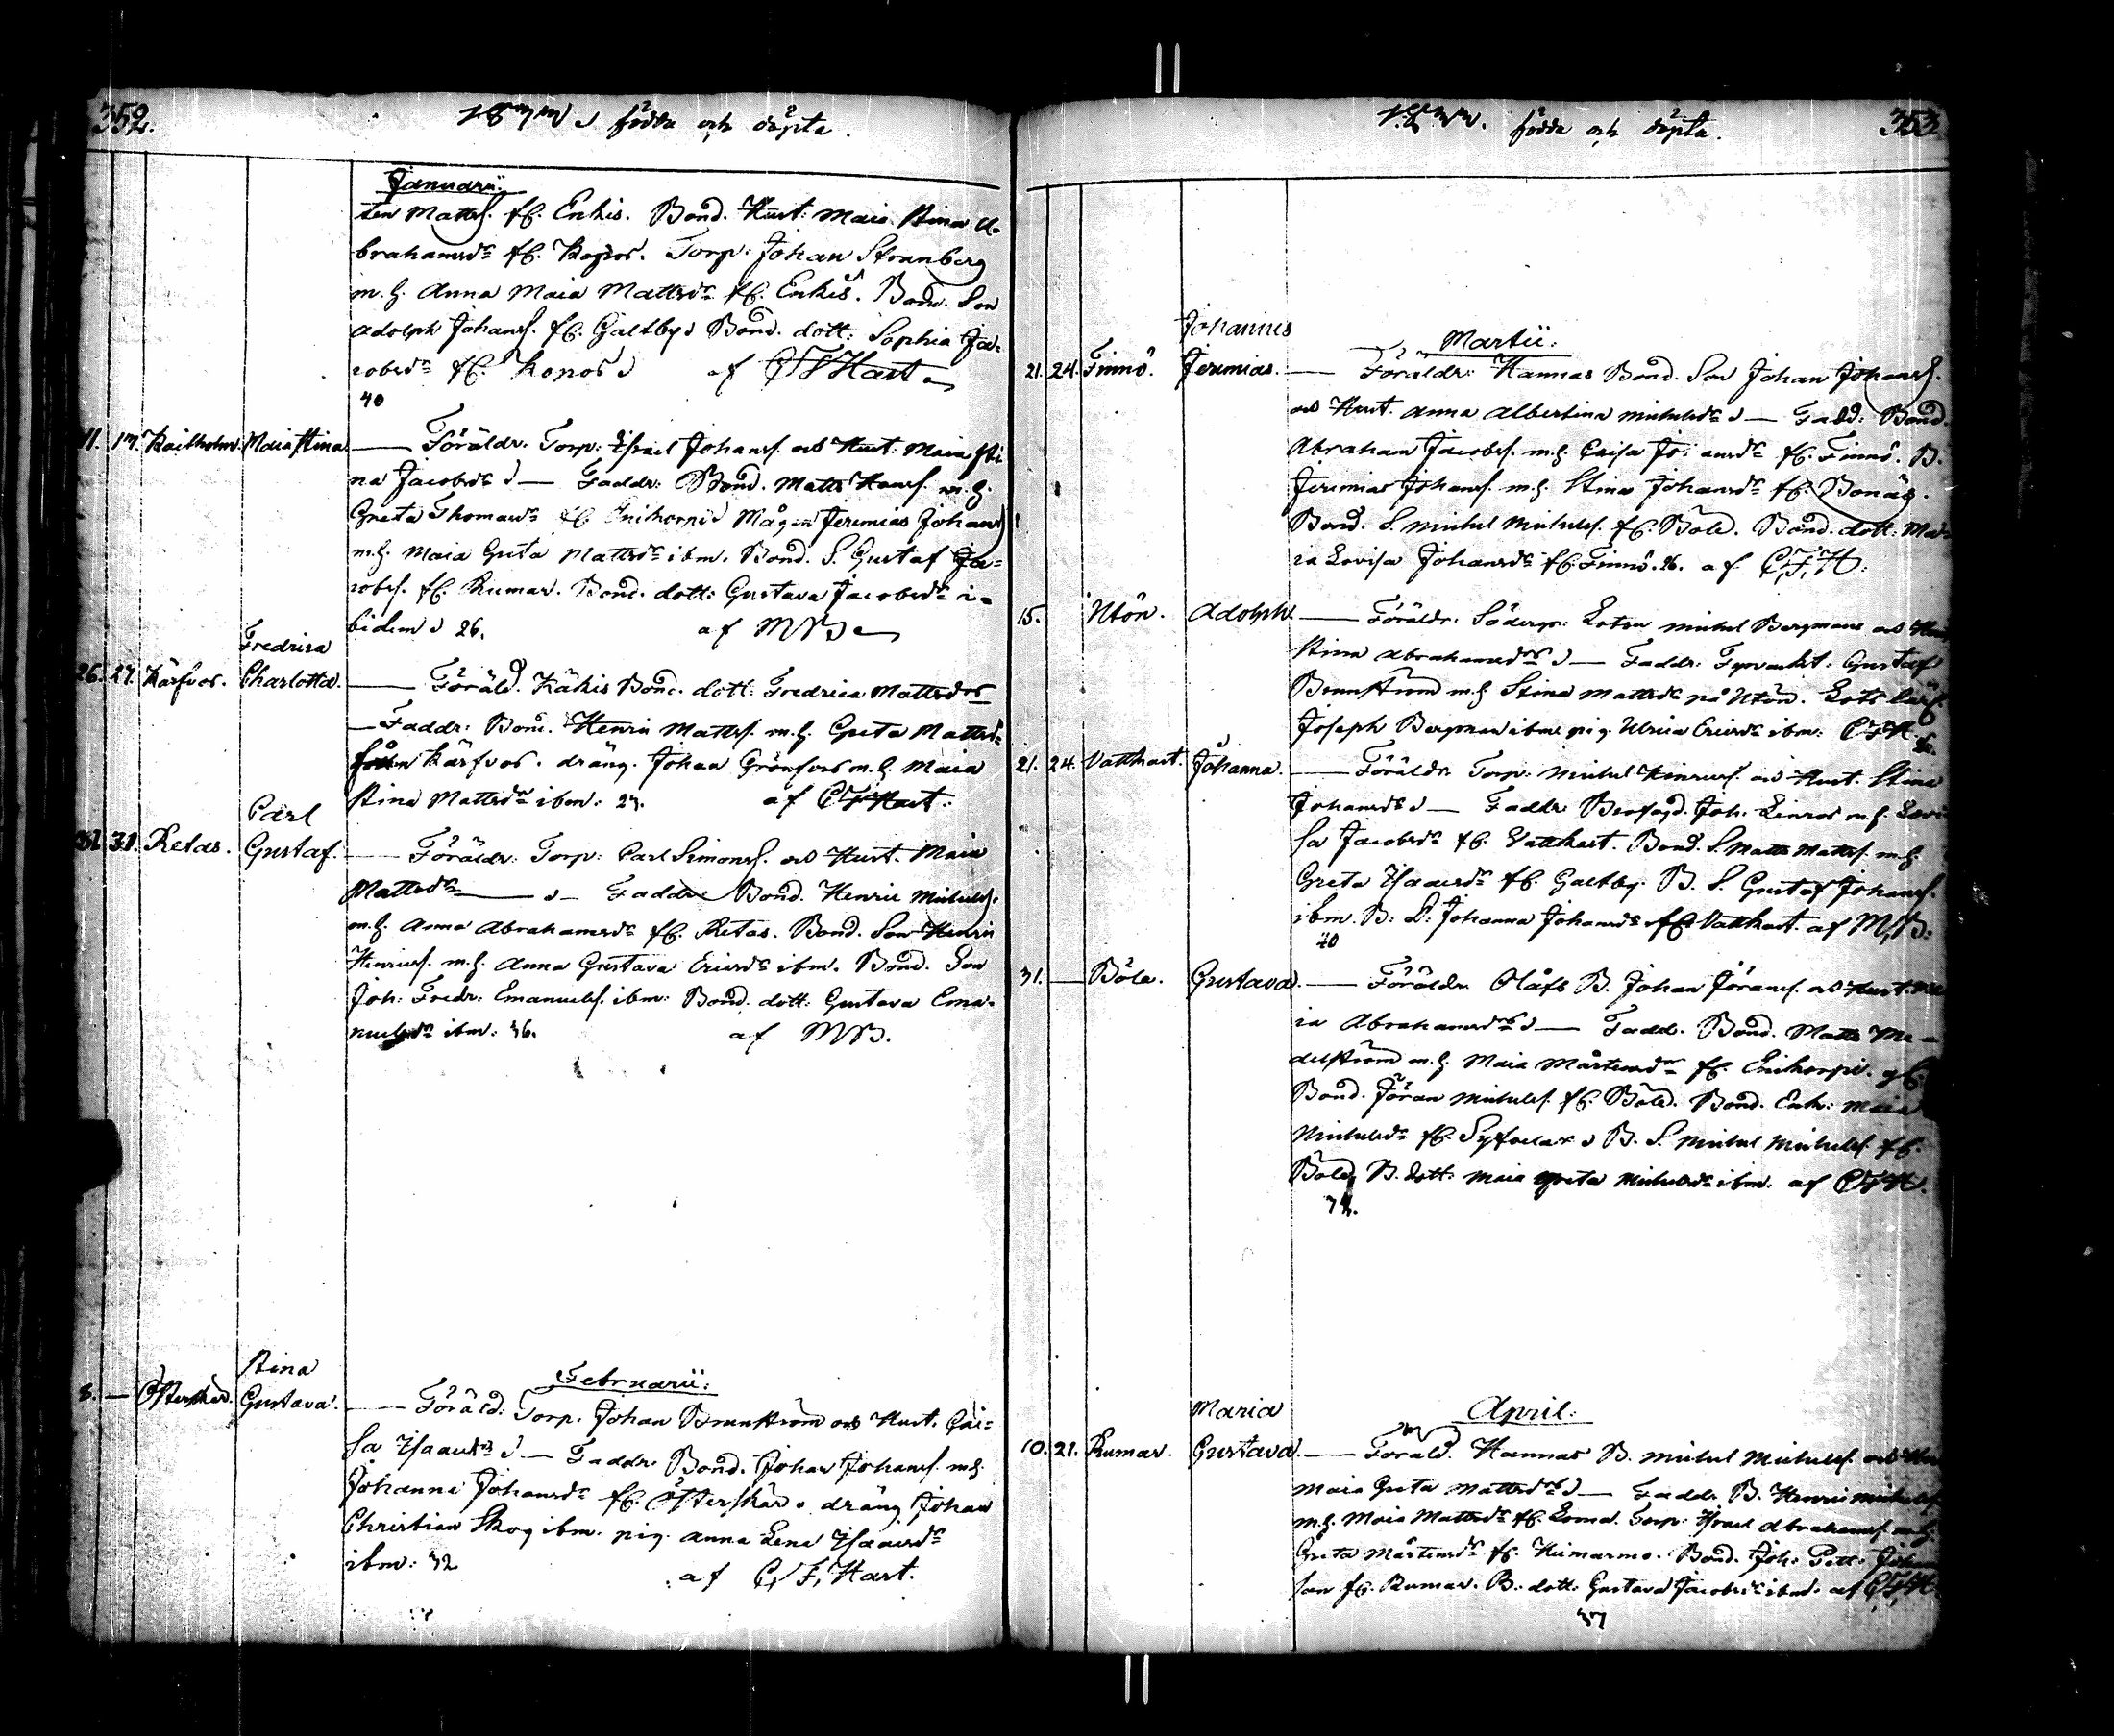 352.
födda och döpta.
Januarii.
ten Mattss. fr. Enkis. Bond. Hust: Maia Stina A-
brahamsdr fr. Torp: Johan Strömberg
m. h. Anna Maia Mattsdr fr. Enkis. Bond. Son
Adolph Johanss. fr. Galtby Bond. dott: Sophia Ja-
cobsdr fr. Konos af C F Hart
40
11. 17. Kaitholm. Maia Stina
Föräldr. Torp: Israel Johanss. och Hust: Maia Sti
na Jacobsdr — Faddr: Bond. Matts Hanss. m. h.
Greta Thomasdr fr. Mågen Jeremias Johans
m. h. Maia Greta Mattsdr ibm. Bond. S. Gustaf Ja-
cobss. fr. Rumar. Bond. dott: Gustava Jacobsdr i-
bidem 26. af MB
Fredrica
26. 27. Kärfvos. Charlotta.
Föräld. Käkis Bond. dott: Fredrica Mattsdor
— Faddr: Bond. Henric Mattss. m. h. Greta Mattsd
från Kärfvos. dräng. Johan Grönfors m. h. Maia
Stina Mattsdr ibm: 27. af C F Hart.
Carl
31. 31. Retas. Gustaf.
Föräldr: Torp: Carl Simonss. och Hust. Maia
Mattsdr — Faddr Bond. Henric Michelss.
m. h. Anna Abrahamsdr fr. Retas. Bond. Son Henric
Henricss. m. h. Anna Gustava Ericsdr ibm. Bond. Son
Joh: Fredr: Emanuelss. ibm: Bond. dott: Gustava Ema-
nuelsdr ibm: 36. af MB.
Februarii:
Stina
3. — Österskär. Gustava.
Föräld: Torp. Johan Brunström och Hust. Cai-
sa Isaacsdr — Faddr. Bond. Johan Johanss. m. h.
Johanna Johansdr fr. Österskär. dräng Johan
Christian Skog ibm. pig. Anna Lena Isaacsdr
ibm: 32 af C, F, Hart.
353
födda och döpta.
Johannes
Martii:
21. 24. Finnö. Jeremias.
Föräldr: Hannas Bond. Son Johan Johanss.
och Hust. Anna Albertina Michelsdr — Fadd: Bond.
Abraham Jacobss. m. h. Caisa fr. Finnö. B.
Jeremias Johanss. m. h. Stina Johansdr fr. Bonäs.
Bond. S. Michel Michelss. fr. Böle. Bond. dott: Ma-
ria Lovisa Johansdr fr. Finnö. 26. af C, F, H:
15. Utön. Adolph.
Föräldr. Södergr: Lotsen Michel Bergman och
Stina Abrahamsdor — Faddr: Fyrvakt: Gustaf
Brunström m. h. Stina Mattsdr på Utön. Lots
Joseph Bergman ibm. pig. Ulrica Ericsdr ibm: CFH
36.
21. 24. Vattkast. Johanna.
Föräldr Torp: Michel Henricss. och Hust. Stina
Johansdr — Faddr Joh. Linros m. h. Lovi
sa Jacobsdr fr. Vattkast. Bond. S. Matts Mattss. m. h.
Greta Isaacsdr fr. Galtby. B. S. Gustaf Johanss.
ibm. B: D: Johanna Johansdr fr Vattkast. af M, B:
40
31. — Böle. Gustava.
Föräldr. Olåfs B. Johan Jöranss. och Hust.
ia Abrahamsdr — Fadd. Bond. Matts Me-
delström m. h. Maia Mårtensdr fr.
Bond. Jöran Michelss. fr. Böle. Bond. Enk: Maia
Michelsdr fr. B. S. Michel Michelss. fr.
Böle, B. dott: Maia Greta Michelsdr ibm. af CFH.
April:
Maria
10. 21. Rumar. Gustava.
Föräld. Hannas B. Michel Michelss. och
Maia Greta Mattsdr — Faddr. B. Henric Michelss
m. h. Maia Mattsdr fr. Torp: Israel Abrahamss. m. h.
Greta Mårtensdr fr. Bond. Joh: Pett: Johan
son fr. Rumar. B. dott: Gustava Jacobsdr ibid. af CFH
37